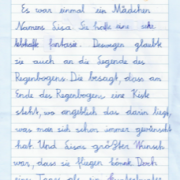 Es war einmal ein Mädchen
Namens Luisa. Sie hatte eine sehr
lebhafte fantasie. Deswegen glaubte
sie auch an die Legende des
Regenbogens. Die besagt, dass am
Ende des Regenbogens eine Kiste
steht, wo angeblich das darin liegt,
was man sich schon immer gewünscht
hat. Und Luisas größter Wunsch
war, dass sie fliegen könnte. Doch
eines Tages, als sie